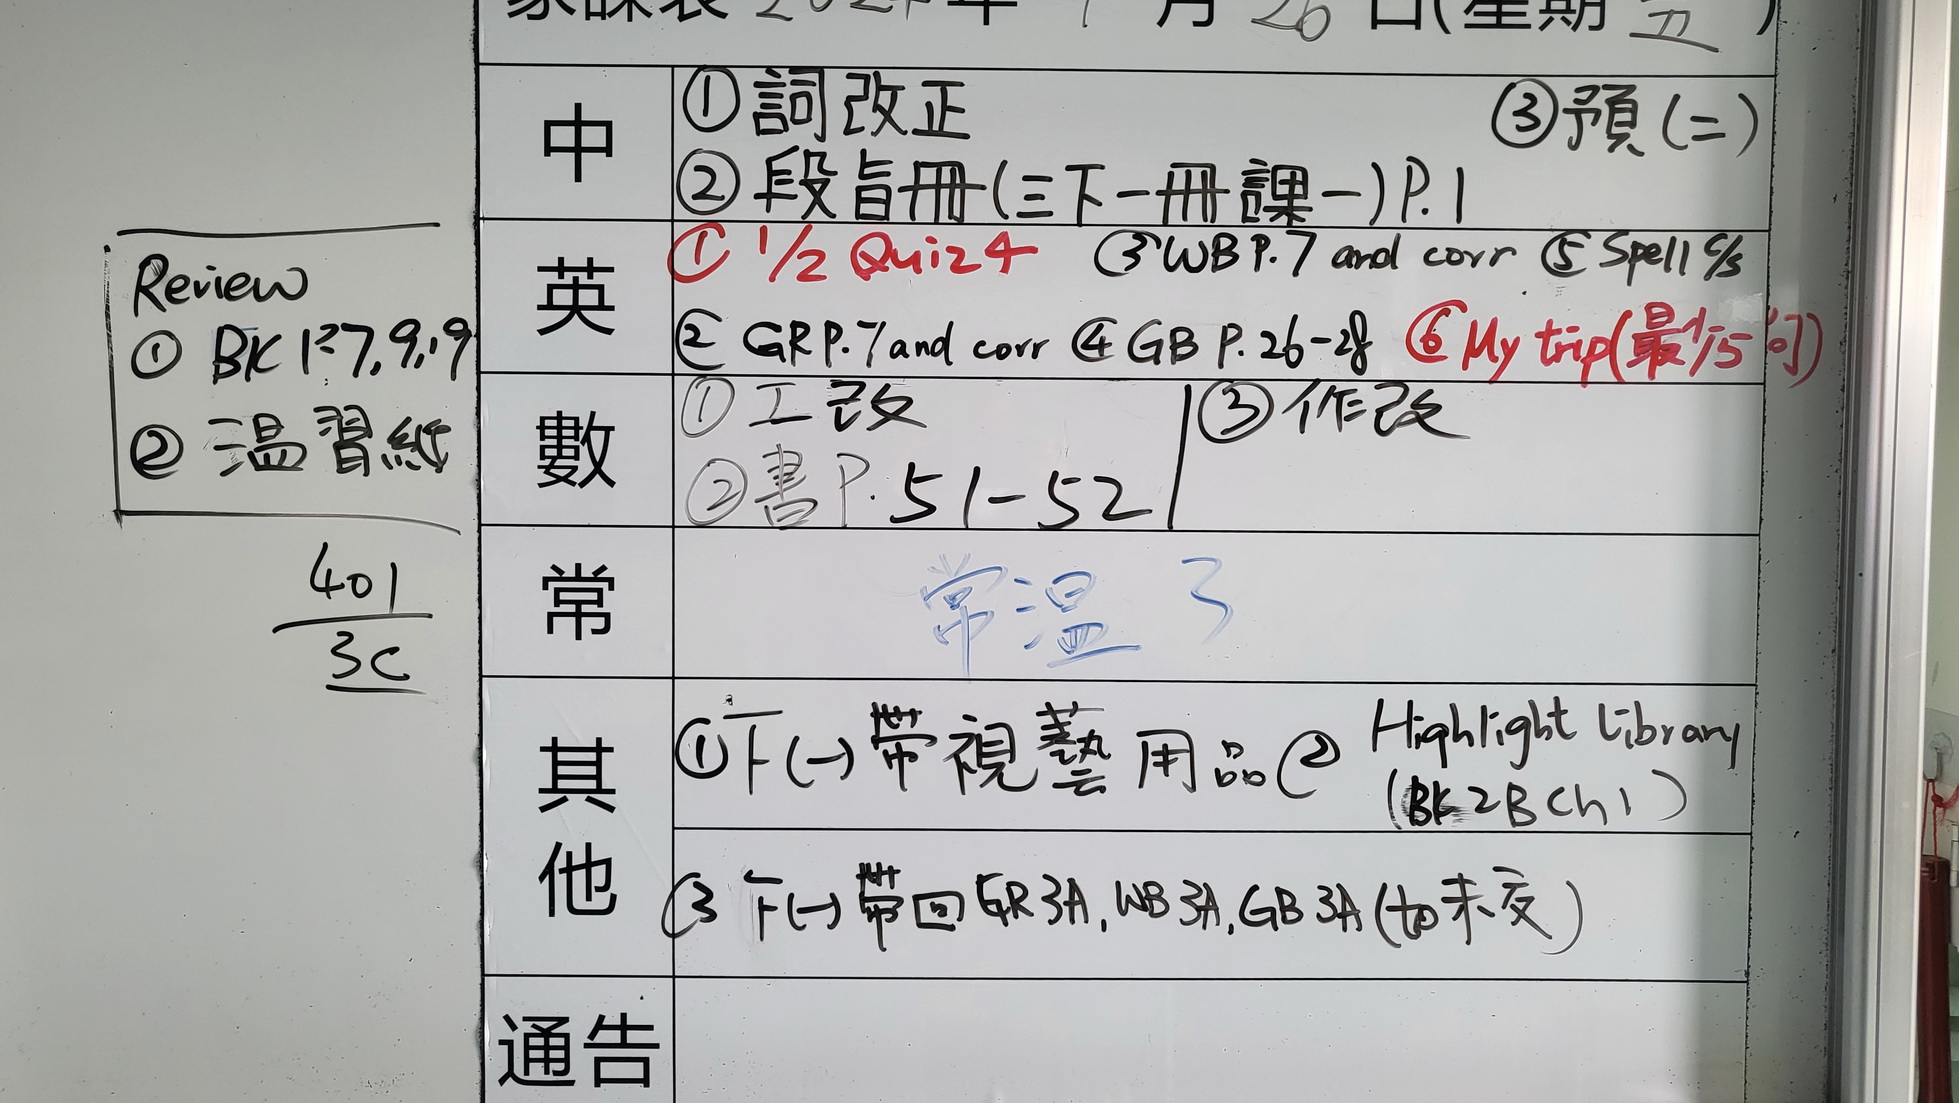 家課表 2024年 1月 26日(星期五)
中
①詞改正 ③預(二)
②段旨冊(三下一冊課一)P.1
英
① 1/2 Quiz 4 ③WB P.7 and corr ⑤Spell c/s
② GR P.7 and corr ④ GB P.26-28 ⑥My trip(最少5句)
數
①工改 ③作改
②書P.51-52
常
常温 3
其他
①下(一)帶視藝用品② Highlight Library
(BK 2B Ch 1)
③下(一)帶回GR 3A, WB 3A, GB 3A(如未交)
通告
Review
① BK 1: 7, 9, 19
② 温習紙
401
3C